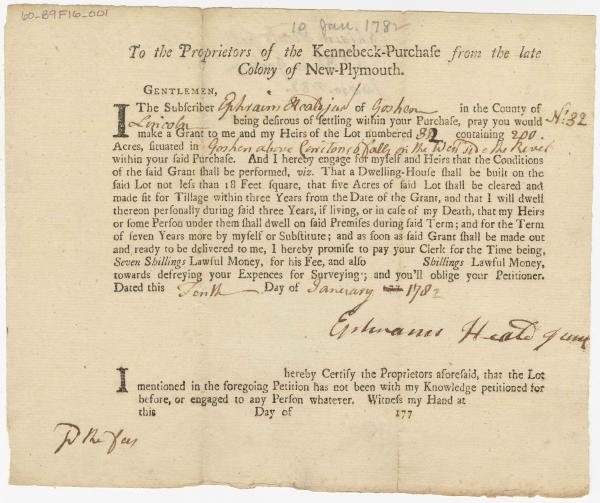 60-B9F16-001
10 Jan. 1782
To the Proprietors of the Kennebeck-Purchase from the late
Colony of New-Plymouth.
GENTLEMEN,
I The Subscriber Ephraim Heald jun of Goshen in the County of
Lincoln being desirous of settling within your Purchase, pray you would No: 32
make a Grant to me and my Heirs of the Lot numbered 32 containing 200.
Acres, situated in Goshen above falls on the West side the River
within your said Purchase. And I hereby engage for myself and Heirs that the Conditions
of the said Grant shall be performed, viz. That a Dwelling-House shall be built on the
said Lot not less than 18 Feet square, that five Acres of said Lot shall be cleared and
made fit for Tillage within three Years from the Date of the Grant, and that I will dwell
thereon personally during said three Years, if living, or in case of my Death, that my Heirs
or some Person under them shall dwell on said Premises during said Term; and for the Term
of seven Years more by myself or Substitute; and as soon as said Grant shall be made out
and ready to be delivered to me, I hereby promise to pay your Clerk for the Time being,
Seven Shillings Lawful Money, for his Fee, and also Shillings Lawful Money,
towards defreying your Expences for Surveying; and you'll oblige your Petitioner.
Dated this Tenth Day of January 1782
Ephraim Heald jun
I hereby Certify the Proprietors aforesaid, that the Lot
mentioned in the foregoing Petition has not been with my Knowledge petitioned for
before, or engaged to any Person whatever. Witness my Hand at
this Day of 177